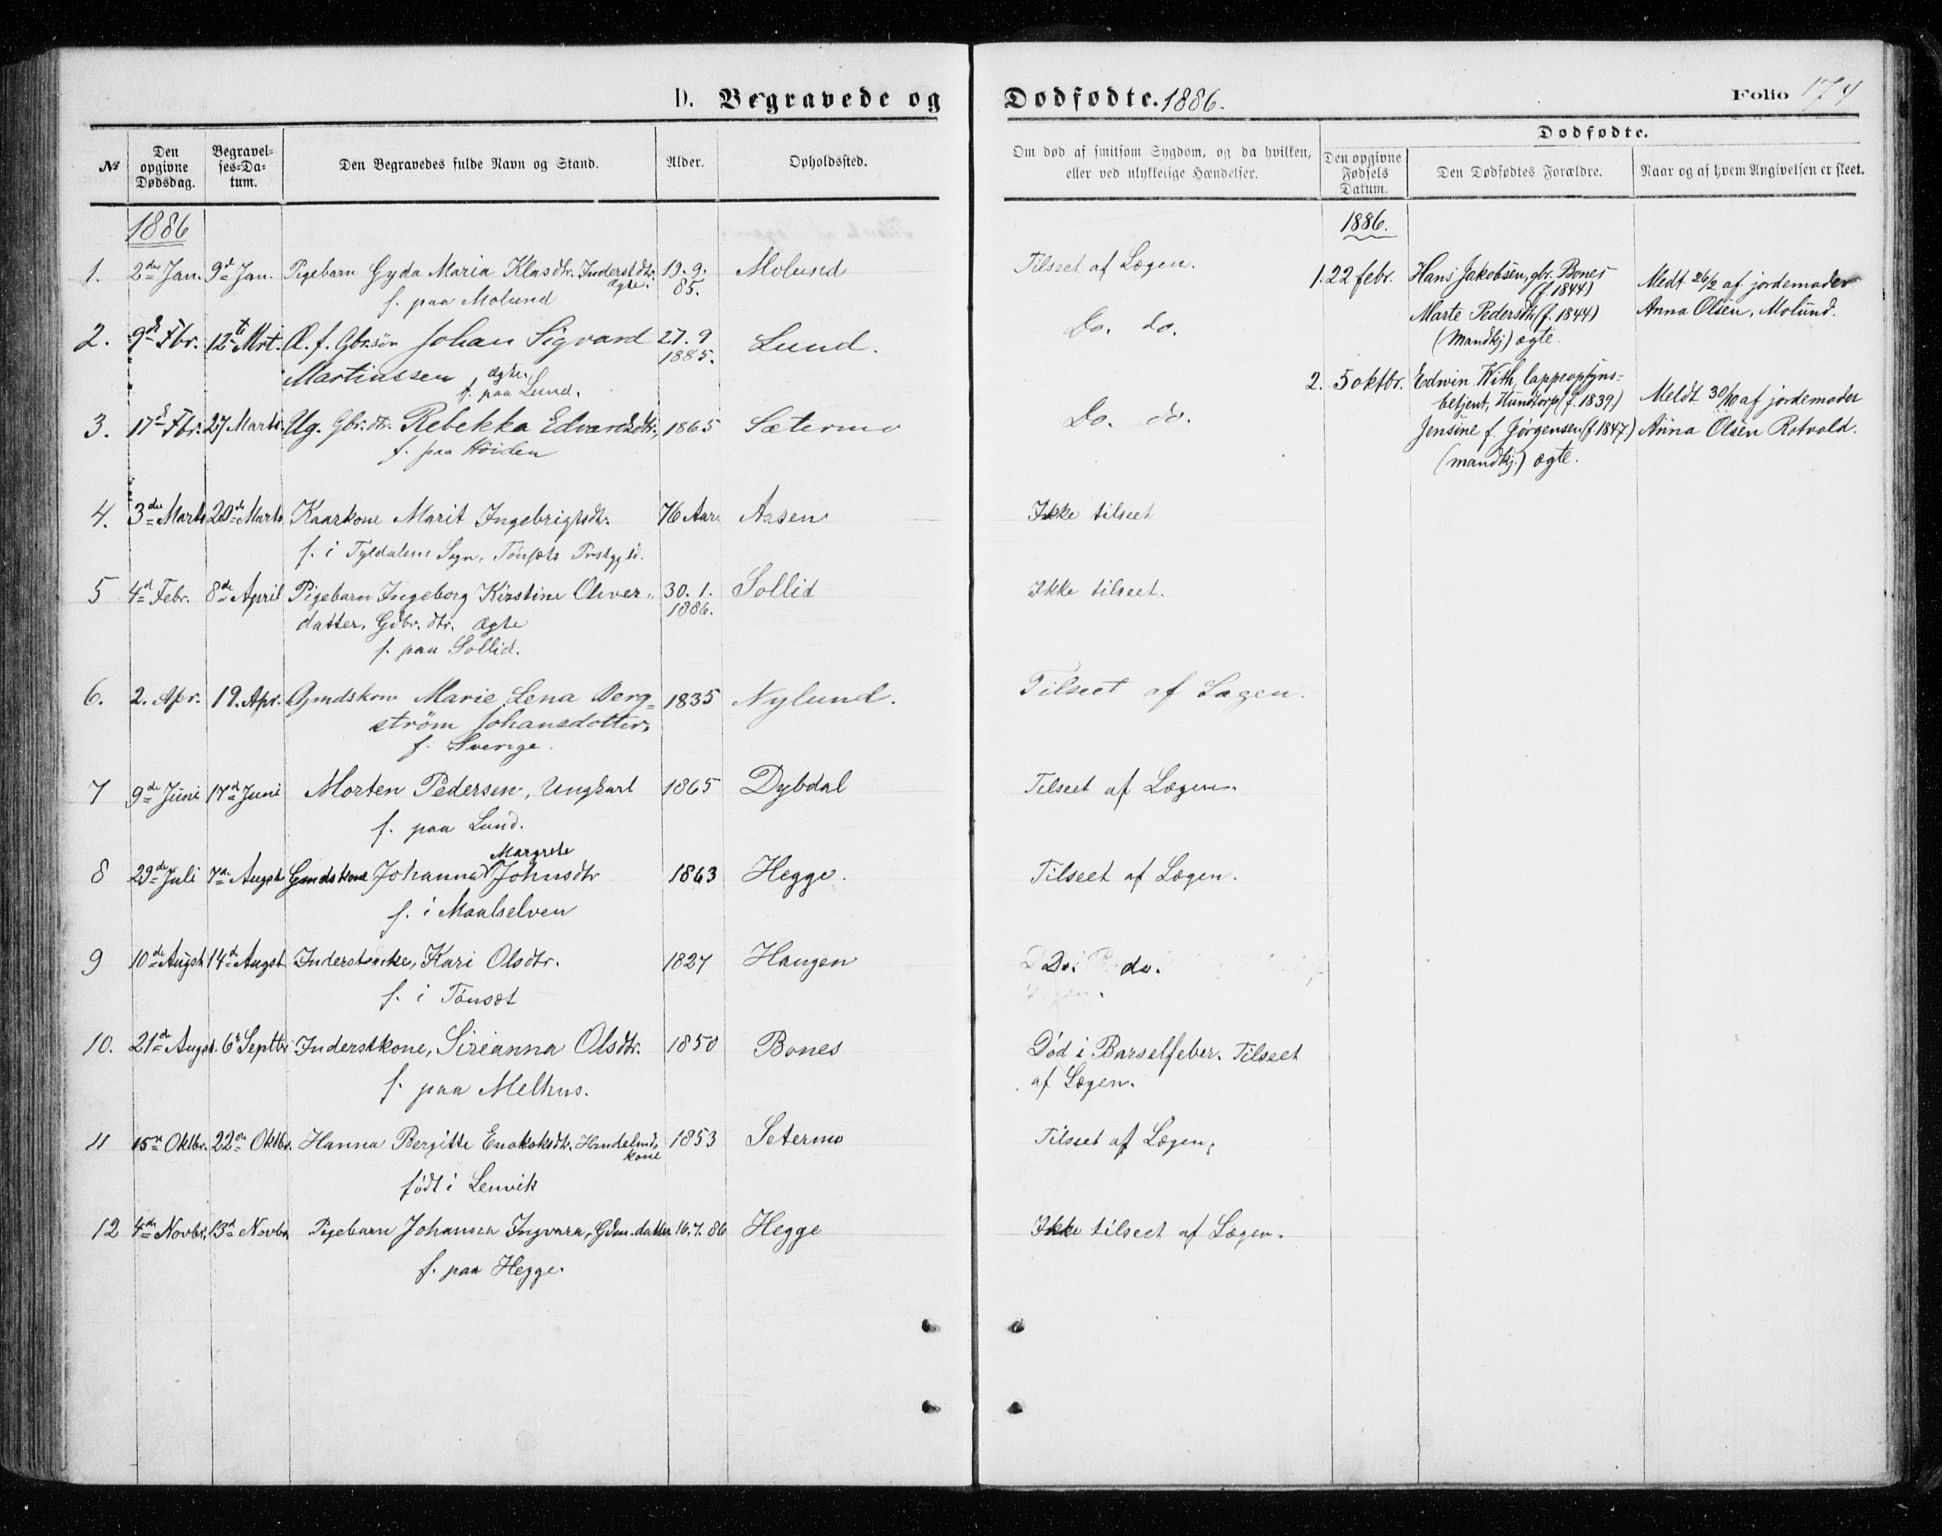 D. Begravede og Dødfødte. 1886. Folio 174
№
Den opgivne Dødsdag.
Begravelses-Datum.
Den Begravedes fulde Navn og Stand.
Alder.
Opholdssted.
Om død af smitsom Sygdom, og da hvilken, eller ved ulykkelige Hændelser.
Dødfødte.
Den opgivne Fødsels Datum.
Den Dødfødtes Forældre.
Naar og af hvem Angivelsen er skeet.
1886
1. 2den Jan. 9d Jan. Pigebarn Gyda Maria Klasdtr. Inderstdtr. 19.9. Molund Tilseet af Lægen.
ægte. 85.
f. paa Molund
2. 9d Fbr. 12te Mrt. Æ. f. Gbrsøn Johan Sigvard 27.9 Lund. Do. do.
Martinssen ægte. 1885.
f. paa Lund.
3. 17d Fbr. 27 Marts. Ug. Gbr.dtr. Rebekka Edvardsdtr., 1865 Sætermo Do. do.
f. paa Höiden
4. 3die Marts 20de Marts Kaarkone Marit Ingebrigtsdtr. 76 Aar Aasen Ikke tilseet
f. i Tyldalens Sogn, Tönsets Prstgjld.
5 4d Febr. 8de April Pigebarn Ingeborg Kirstine Oliver- 30.1. Sollid Ikke tilseet.
datter, Gdbr. dtr. ægte 1886.
f. paa Sollid.
6. 2. Apr. 19. Apr. Gmdskone Marie Lena Berg= 1835 Nylund. Tilseet af Lægen.
ström Johansdotter,
f. Sverige.
7 9de Juni 17d Juni Morten Pedersen, Ungkarl 1865 Dybdal Tilseet af Lægen.
f. paa Lund.
Margrete
8 29de Juli 7de Augst Gmdskone Johanna Johnsdtr 1863 Hegge. Tilseet af Lægen.
f. i Maalselven
9 10de Augst 14de Augst Inderstenke, Kari Olsdtr. 1827 Haugen Do. do.
f. i Tönset
10. 21de Augst. 6d Septbr Inderstkone, Sirianna Olsdtr. 1850 Bones Död i Barselfeber. Tilseet
f. paa Melhus. af Lægen.
11 15de Oktbr. 22de Oktbr. Hanna Bergitte Enokoksdtr. Handelmds 1853 Setermo Tilseet af Lægen.
kone
født i Lenvik
12 4de Novbr. 13d Novbr. Pigebarn Johanna Ingvara, Gdm. datter 16.7.86 Hegge Ikke tilseet af Lægen.
f. paa Hegge.
1886.
1. 22 febr. Hans Jakobsen, gbr. Bones Medt 26/2 af jordemoder
(f. 1844)
Marte Pedersdtr (f. 1844) Anna Olsen, Molund.
(Mandkj) ægte.
2. 5 oktbr. Edwin With, lappeopsyns-
betjent, Hundtorp (f. 1839) Meldt 30/10 af jordemoder
Jensine f. Jørgensen (f. 1847) Anna Olsen Rotvold.
(mandkj.) ægte.